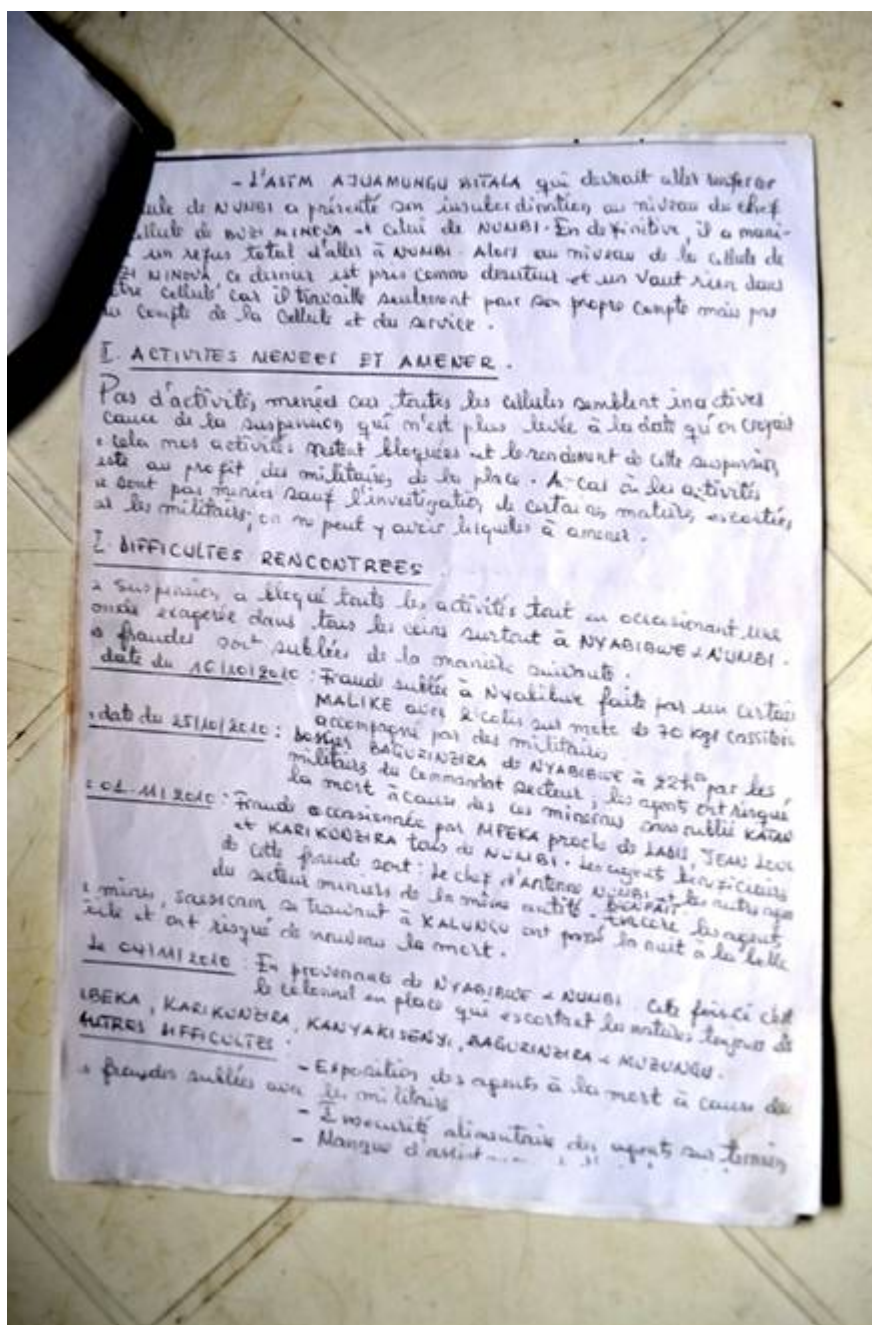 - L'ASTM AJUAMUNGU BITALA qui devrait aller renforcer
ule de NUNBI a présenté son insubordination au niveau du chef
ellule de BUZI MINOVA et celui de NUMBI. En definitive, il a mani-
un refus total d'aller à NUMBI. Alors au niveau de la cellule de
ZI MINOVA ce dernier est pris comme deserteur et un Vaut rien dans
tre cellule car il travaille seulement pour son propre compte mais pas
compte de la Cellule et du service.
I. ACTIVITES MENEES ET AMENER.
Pas d'activités menées car toutes les cellules semblent inactives
cause de la suspension qui n'est plus levée à la date qu'on croyait
cela nos activités restent bloquées et le rendement de cette suspension
este au profit des militaires de la place. A cas où les activités
e sont pas menées sauf l'investigation de certaines matières escortées
les militaires, on ne peut y avoir lesquelles à amener.
I. DIFFICULTES RENCONTREES
suspension a bloqué touts les activités tout en occasionant une
exagerée dans tous les coins surtout à NYABIBWE & NUMBI.
s fraudes sont sublées de la manière suivante.
date du 16/10/2010 : Fraude sublée à Nyabibwe faite par un certain
MALIKE avec 2 colis sur moto de 70 kgs cassitérite
accompagné par des militaires
date du 25/10/2010 : BAGURINZIRA de NYABIBWE à 22h00 par les
militaires du Commandat secteur, les agents ont risqué
la mort à cause des ces minerais
01-11/2010 : Fraude occasionnée par MPEKA proche de JEAN
et KARIKUNZIRA tous de NUMBI. Les agents beneficiaires
de cette fraude sont : le chef d'Antenne NUMBI et les autres
du secteur miniers de la même entité. les agents
mines, saesscam se trouvant à KALUNGU ont passé la nuit à la belle
oile et ont risqué de nouveau la mort.
Le 04/11/2010 : En provenance de NYABIBWE & NUMBI. Cette fois ci c'est
le colonel en place qui escortait les matières toujours de
KARIKUNZIRA, KANYAKISENYI, BAGURINZIRA & MUZUNGU.
AUTRES DIFFICULTES.
- Exposition des agents à la mort à cause des
s fraudes sublées avec les militaires
- Insecurité alimentaire des agents sur terrain
- Manque